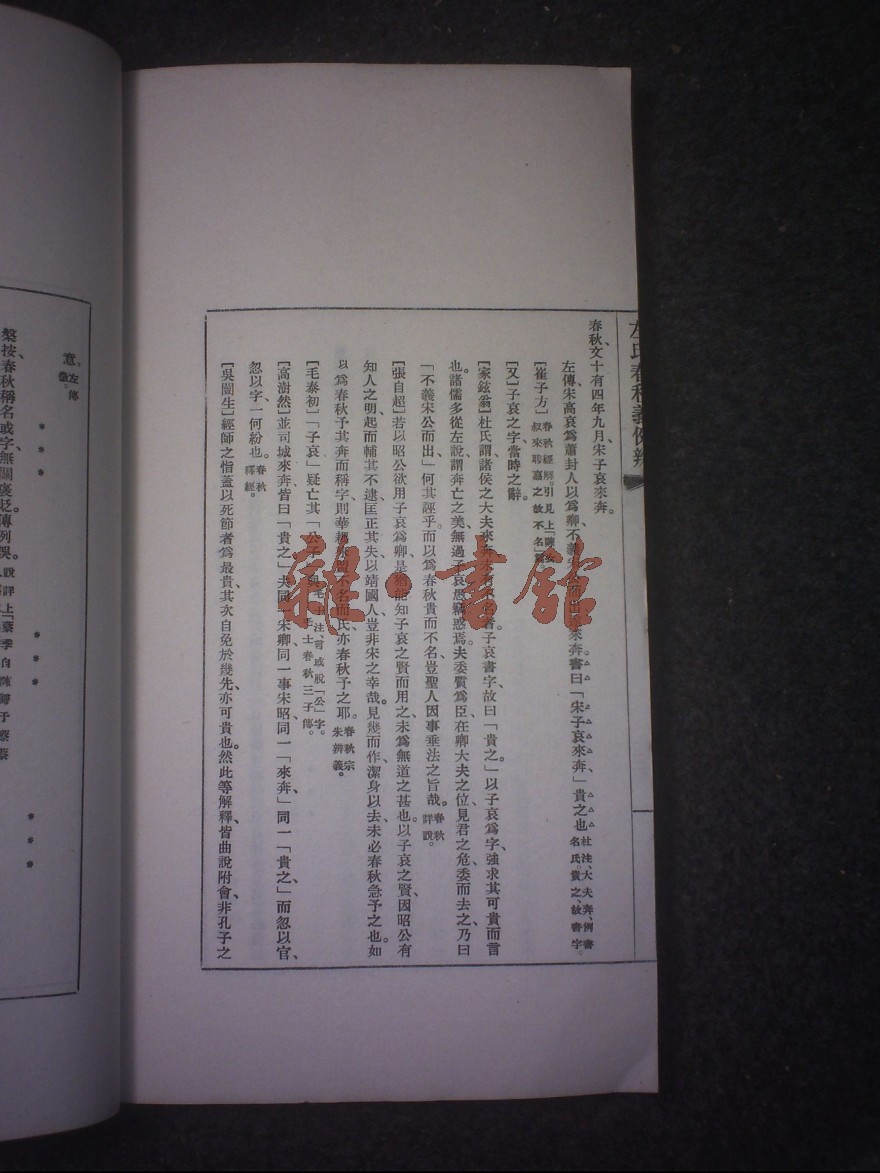 左氏春秋義例辨
春秋文十有四年九月、宋子哀來奔。
左傳、宋高哀爲蕭封人以爲卿、不義宋公而出、遂來奔、書曰「宋子哀來奔」貴之也、杜注、大夫奔、例書名氏。貴之、故書字。
[崔子方]春秋經解。引見上「陳
叔來聘、嘉之故不名」
[又]子哀之字、當時之辭。
[家鉉翁]杜氏謂諸侯之大夫來奔、未有不名者、子哀書字、故曰「貴之」以子哀爲字、強求其可貴而言
也。諸儒多從左說、謂奔亡之美、無過子哀、愚竊惑焉。夫委質爲臣、在卿大夫之位、見君之危、委而去之、乃曰
「不義宋公而出」何其誣乎。而以爲春秋貴而不名、豈聖人因事垂法之旨哉。春秋詳說。
[張自超]若以昭公欲用子哀爲卿、是猶能知子哀之賢而用之、未爲無道之甚也。以子哀之賢、因昭公有
知人之明、起而輔其不逮、匡正其失、以靖國人、豈非宋之幸哉。見幾而作、潔身以去、未必春秋急予之也。如
以爲春秋予其奔而稱字、則華 不名而氏、亦春秋予之耶。春秋宗朱辨義。
[毛泰初]「子哀」疑亡其「公子」 毛士注、或脫「公」字。
毛士春秋三子傳。
[高澍然]並司城來奔、皆曰「貴之」夫同一宋卿、同一事宋昭、同一「來奔」同一「貴之」而忽以官、
忽以字、一何紛也。春秋釋經。
[吳闓生]經師之恉、蓋以死節者爲最貴、其次自免於幾先、亦可貴也。然此等解釋、皆曲說附會、非孔子之
意。左傳微。
槃按、春秋稱名或字、無關褒貶、傳列哭。說詳上「蔡季自陳歸于蔡
雜·書館